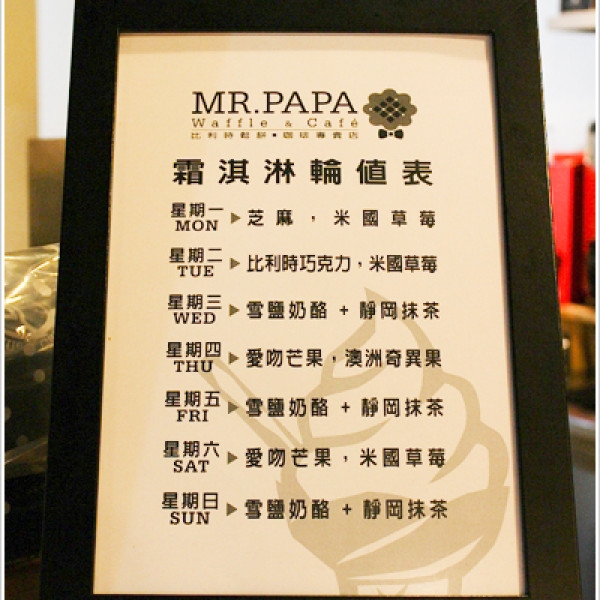 MR.PAPA
Waffle & Café
比利時鬆餅•咖啡專賣店
霜淇淋輪值表
星期一 MON ▶ 芝麻，米國草莓
星期二 TUE ▶ 比利時巧克力，米國草莓
星期三 WED ▶ 雪鹽奶酪 + 靜岡抹茶
星期四 THU ▶ 愛吻芒果，澳洲奇異果
星期五 FRI ▶ 雪鹽奶酪 + 靜岡抹茶
星期六 SAT ▶ 愛吻芒果，米國草莓
星期日 SUN ▶ 雪鹽奶酪 + 靜岡抹茶